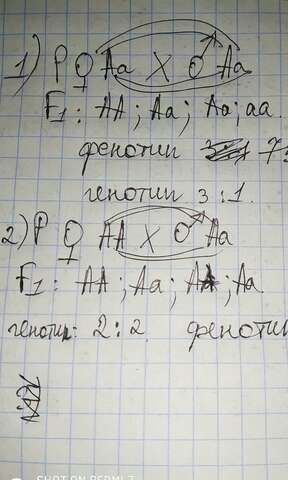 1) P ♀ Aa X ♂ Aa
F1: AA; Aa; Aa; aa.
фенотип 7:
генотип 3:1.
2) P ♀ AA X ♂ Aa
F1: AA; Aa; AA; Aa.
генотип: 2:2. фенотип
SHOT ON REDMI 7